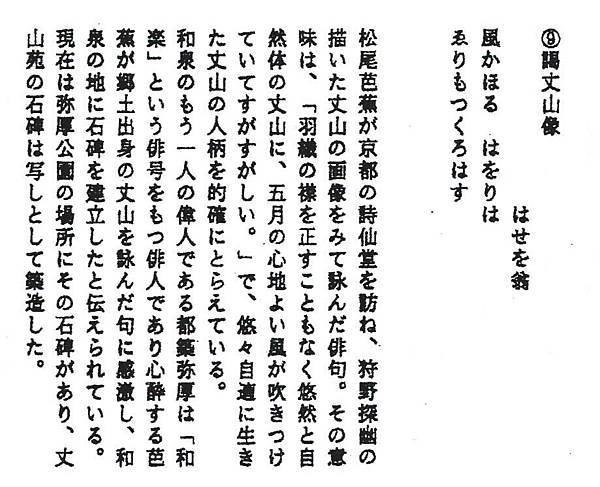 ⑨謁丈山像
はせを翁
風かほる　はをりは
ゑりもつくろはす
松尾芭蕉が京都の詩仙堂を訪ね、狩野探幽の
描いた丈山の画像をみて詠んだ俳句。その意
味は、「羽織の襟を正すこともなく悠然と自
然体の丈山に、五月の心地よい風が吹きつけ
ていてすがすがしい。」で、悠々自適に生き
た丈山の人柄を的確にとらえている。
和泉のもう一人の偉人である都築弥厚は「和
楽」という俳号をもつ俳人であり心酔する芭
蕉が郷土出身の丈山を詠んだ句に感激し、和
泉の地に石碑を建立したと伝えられている。
現在は弥厚公園の場所にその石碑があり、丈
山苑の石碑は写しとして築造した。